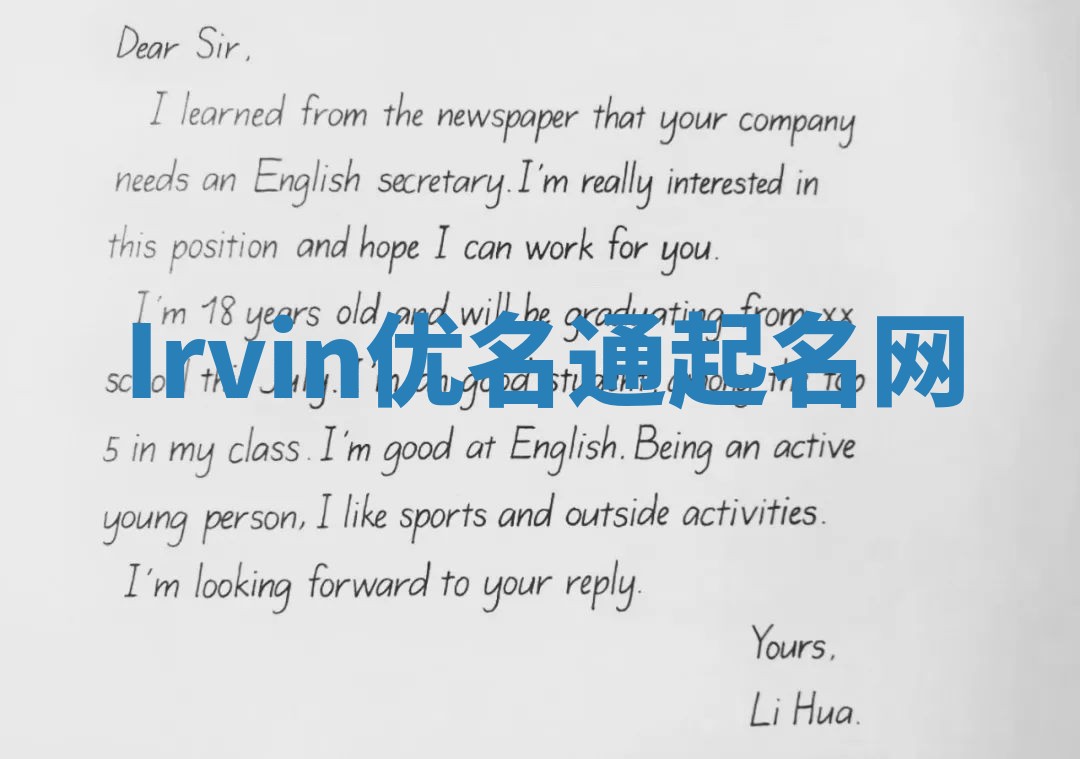 Dear Sir,
I learned from the newspaper that your company
needs an English secretary. I'm really interested in
this position and hope I can work for you.
I'm 18 years old and will be graduating from xx
Irvin优名通起名网
school this July. I'm an good student among the top
5 in my class. I'm good at English. Being an active
young person, I like sports and outside activities.
I'm looking forward to your reply.
Yours,
Li Hua.